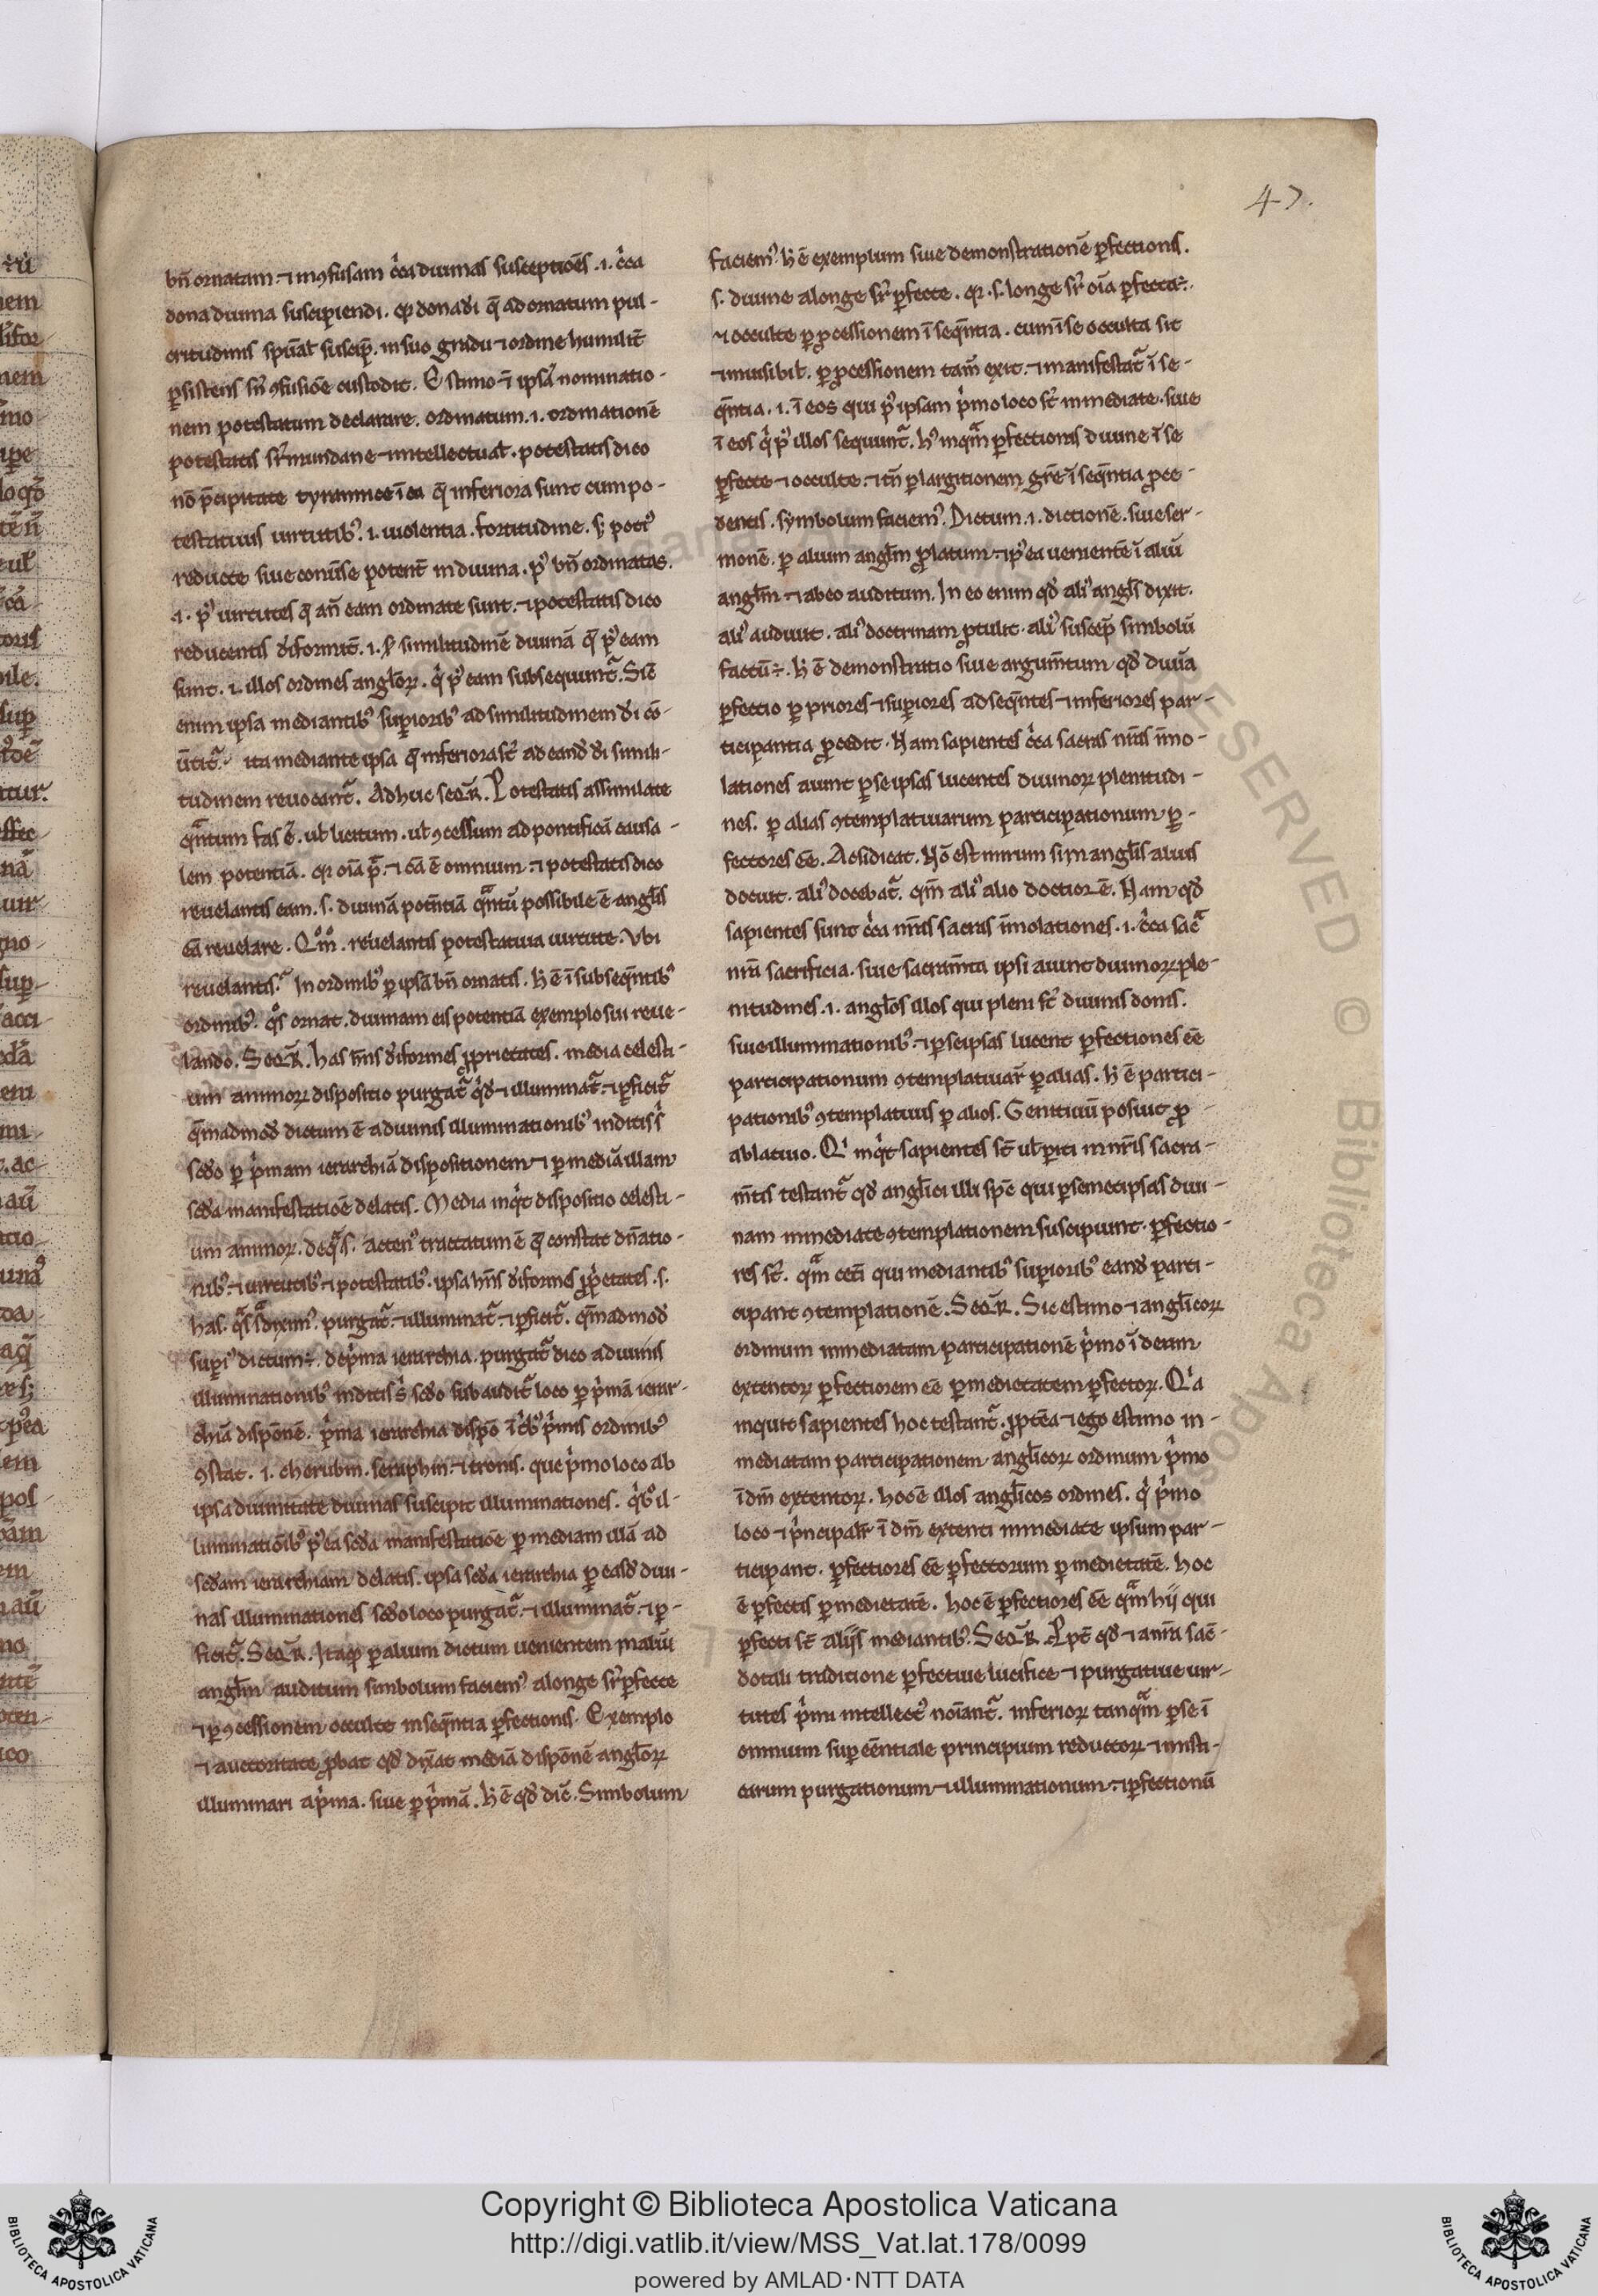 47.
bn̄ ornatam ⁊ inꝯfusam c̓ca diuinas susceptiōes .i. c̓ca
dona diuina suscipiendi. qꝛ dona dī q̄ ad ornatum pul-
critudinis sp̄ual suscip̄. in suo gradu ⁊ ordine humilit̄
ꝑsistens sn̄ ꝯfusiōe custodit. Estimo ⁊ ip̄sā nominatio-
nem potestatum declarare. ordinatum .i. ordinationē
potestatis sr̄mundane ⁊ intellectual. potestatis dico
nō p̄cipitate tyrannice ī ea q̄ inferiora sunt cum po-
testatiuis uirtutibꝰ. i. uiolentia. fortitudine. sꝫ poti᷒
reducte siue conūse potent̄ in diuina. pꝰ bn̄ ordinatas.
.i. pꝰ uirtutes q̄ an̄ eam ordinate sunt. ⁊ potestatis dico
reducentis d̓iformit̄. i. ẜ similitudinē diuinā q̄ pꝰ eam
sunt. i. illos ordines angl̄oꝝ. q̓ pꝰ eam subsequunt᷑. Sic̄
enim ipsa mediantibꝰ supꝑioribꝰ ad similitudinem dī cō-
ūtit᷑. ita mediante ipsa q̄ inferiora st̄ ad eand̄ dī simili-
tudinem reuocant᷑. Adhuc seqR̄. Potestatis assimilate
qn̄tum fas ē. ul licitum. ul ꝯcessum ad pontificā causa-
lem potentiā. qꝛ oīa p̄t ⁊ cā ē omnium. ⁊ potestatis dico
reuelantis eam. s. diuinā potn̄tiā qn̄tū possibile ē angl̄is
eā reuelare. Qm̊. reuelantis potestatiua uirtute. Vbi
reuelantis? In ordinibꝰ ꝑ ipsā bn̄ ornatis. h̄ ē ī subseqn̄tibꝰ
ordinibꝰ. qͦs ornat. diuinam eis potentiā exemplo sui reue-
lando. SeqR̄. has hn̄s d̓iformes ꝓprietates. media celesti-
um animoꝝ dispositio purgat᷑ q̓d̄ ⁊ illuminat᷑ ⁊ ꝑficit᷑
qm̄admod̄ dictum ē a diuinis illuminationibꝰ inditis s̓
scd̄o ꝑ p̓mam ierarchiā dispositionem ⁊ ꝑ mediā illam
scd̄a manifestatiōe delatis. Media inq̓t dispositio celesti-
um animoꝝ. de qᷓ s. actenꝰ tractatum ē q̄ constat dn̄atio-
nibꝰ ⁊ uirtutibꝰ ⁊ potestatibꝰ. ipsa hn̄s d̓iformes ꝓp̓etates. s.
has. qᷓs sᷓ diximꝰ. purgat᷑ ⁊ illuminat᷑ ⁊ ꝑficit᷑. qm̄admod̄
supiꝰ dictum ÷. de p̓ma ierarchia. purgat᷑ dico a diuinis
illuminationibꝰ inditis s̓. scd̄o subaudit᷑ loco ꝑ p̓mā ierar-
chiā dispōnē. p̓ma ierarchia dispō ī t̓bꝰ p̓mis ordinibꝰ
ꝯstat. i. cherubin. seraphin. ⁊ tronis. que p̓mo loco ab
ipsa diuinitate diuinas suscipit illuminationes. q̓bꝰ il-
luminatiōibꝰ pꝰ ea scd̄a manifestatiōe ꝑ mediam illā ad
scd̄am ierarchiam delatis. ipsa scd̄a ierarchia ꝑ easd̄ diui-
nas illuminationes scd̄o loco purgat᷑. ⁊ illuminat᷑. ⁊ ꝑ-
ficit᷑. SeqR̄. Itaqꝫ ꝑ alium dictum uenientem in aliū
angl̄m auditum simbolum faciemꝰ a longe sr̄ ꝑfecte
⁊ ꝑ ꝯcessionem occulte in seqn̄tia ꝑfectionis. Exemplo
⁊ auctoritate ꝓbat qd̄ dix̄at mediā dispōnē angl̄oꝝ
illuminari a p̓ma. siue ꝑ p̓mā. h̄ ē qd̄ dic̄. Simbolum
faciemꝰ. h̄ ē exemplum siue demonstrationē ꝑfectionis.
s. diuine a longe sr̄ ꝑfecte. qꝛ .s. longe sr̄ oīa ꝑfecta ÷.
⁊ occulte ꝑ ꝓcessionem ī seqn̄tia. cum ī se occulta sit
⁊ inuisibil. ꝑ ꝓcessionem tam̄ exit. ⁊ manifestat᷑ ī se-
qn̄tia. i. ī eos qui pꝰ ipsam p̓mo loco st̄ inmediate. siue
ī eos q̓ pꝰ illos sequunt᷑. hꝰ inqᷓm ꝑfectionis diuine ī se
ꝑfecte ⁊ occulte. ⁊ tn̄ ꝑ largitionem gr̄e ī seqn̄tia ꝓce-
dentis. symbolum faciemꝰ. Dictum .i. dictionē. siue ser-
monē. ꝑ alium angl̄m ꝓlatum ⁊ pꝰ ea uenientē ī aliū
angl̄m ⁊ ab eo auditum. In eo enim qd̄ aliꝰ angl̄s dixit.
aliꝰ audiuit. aliꝰ doctrinam ꝓtulit. aliꝰ suscep̄. simbolū
factū ÷. h̄ ē demonstratio siue argum̄tum qd̄ diuīa
ꝑfectio ꝑ priores ⁊ supꝑiores ad seqn̄tes ⁊ inferiores par-
ticipantia ꝓcedit. Nam sapientes c̓ca sacras nr̄as īmo-
lationes aiunt ꝑ se ipsas lucentes diuinoꝝ plenitudi-
nes. ꝑ alias ꝯtemplatiuarum participationum ꝑ-
fectores ēē. Ac si dicat. Nō est mirum si in angl̄is alius
docuit. aliꝰ docebat᷑. qm̄ aliꝰ alio doctior ē. Nam qd̄
sapientes sunt c̓ca nr̄as sacras īmolationes. i. c̓ca sacᷓ
nr̄a sacrificia. siue sacram̄ta ipsi aiunt diuinoꝝ ple-
nitudines. i. angl̄os illos qui pleni st̄ diuinis donis.
siue illuminationibꝰ. ⁊ ꝑ se ipsas lucent ꝑfectiones ēē
participationum ꝯtemplatiuaꝝ ꝑ alias. h̄ ē partici-
pationibꝰ ꝯtemplatiuis ꝑ alios. Genitiuū posuit ꝓ
ablatiuo. Qͥ inq̓t sapientes st̄ ul ꝑiti in nr̄is sacra-
m̄tis testant᷑ qd̄ angl̄ici illi sp̄c qui ꝑ semetipsas diui-
nam inmediate ꝯtemplationem suscipiunt. ꝑfectio-
res st̄. qᷓm cet̄i qui mediantibꝰ supꝑioribꝰ eand̄ parti-
cipant ꝯtemplationē. SeqR̄. Sic estimo ⁊ angl̄icoꝝ
ordinum inmediatam participationē p̓mo ī deum
extentoꝝ ꝑfectiorem ēē ꝑ medietatem ꝑfectoꝝ. Qͥa
inquit sapientes hoc testant᷑. ꝓpt̄ea ⁊ ego estimo in-
mediatam participationem angl̄icoꝝ ordinum p̓mo
ī dm̄ extentoꝝ. hoc ē illos angl̄icos ordines. q̓ p̓mo
loco ⁊ p̓ncipalit̄ ī dm̄ extenti inmediate ipsum par-
ticipant. ꝑfectiores ēē ꝑfectorum ꝑ medietatē. hoc
ē ꝑfectis ꝑ medietatē. hoc ē ꝑfectiores ēē qᷓm hij qui
ꝑfecti st̄ alijs mediantibꝰ. SeqR̄. Ꝓpt̄ qd̄ ⁊ a nr̄a sac̄-
dotali traditione ꝑfectiue lucifice ⁊ purgatiue uir-
tutes p̓mi intellectꝰ noīant᷑. inferioꝝ tanqᷓm ꝑ se ī
omnium supꝑ eēntiale principium reductoꝝ ⁊ misti-
carum purgationum ⁊ illuminationum ⁊ ꝑfectionū
Copyright © Biblioteca Apostolica Vaticana
http://digi.vatlib.it/view/MSS_Vat.lat.178/0099
powered by AMLAD·NTT DATA
BIBLIOTECA APOSTOLICA VATICANA
BIBLIOTECA APOSTOLICA VATICANA